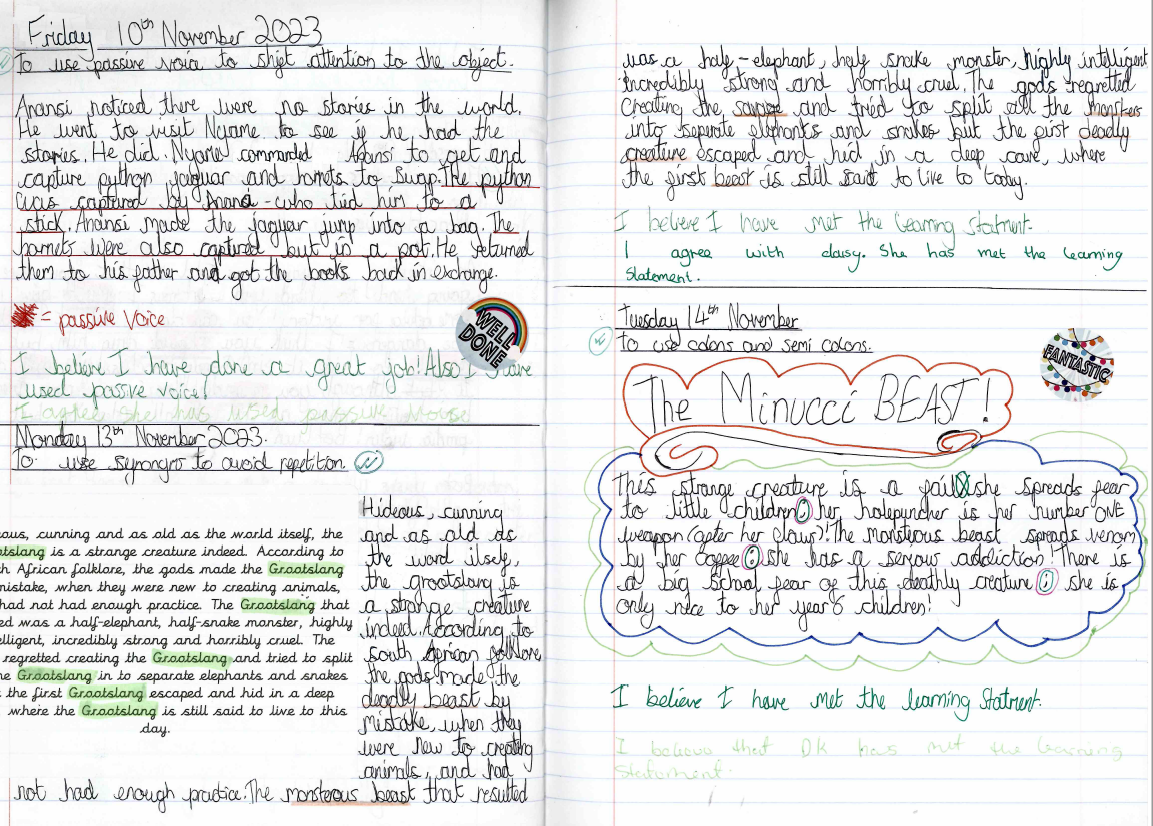 Friday 10th November 2023
To use passive voice to shift attention to the object.
Anansi noticed there were no stories in the world.
He went to visit Nyame to see if he had the
stories. He did. Nyame commanded Anansi to get and
capture python jaguar and hornets to swap. The python
was captured by Anansi - who tied him to a
stick. Anansi made the jaguar jump into a bag. The
hornets were also captured but in a pot. He returned
them to his father and got the books back in exchange.
= passive voice
WELL
DONE
I believe I have done a great job! Also I have
used passive voice!
I agree she has used passive
Monday 13th November 2023.
To use to avoid repetition.
ous, cunning and as old as the world itself, the
otslang is a strange creature indeed. According to
h African folklore, the gods made the Grootslang
mistake, when they were new to creating animals,
had not had enough practice. The Grootslang that
ed was a half-elephant, half-snake monster, highly
elligent, incredibly strong and horribly cruel. The
regretted creating the Grootslang and tried to split
he Grootslang in to separate elephants and snakes
the first Grootslang escaped and hid in a deep
where the Grootslang is still said to live to this
day.
Hideous, cunning
and as old as
the word itself,
the grootslang is
a strange creature
indeed. According to
south African folklore,
the gods made the
deadly beast by
mistake, when they
were new to creating
animals, and had
not had enough practice. The monsterous beast that resulted
was a half-elephant, half snake monster, highly intelligent
incredibly strong and horribly cruel. The gods regretted
creating the and tried to split all the monsters
into seperate elephants and snakes but the first deadly
creature escaped and hid in a deep cave, where
the first beast is still said to live to today.
I believe I have met the learning statment.
I agree with daisy. She has met the learning
statement.
Tuesday 14th November
To use colons and semi colons.
FANTASTIC
The Minucci BEAST!
This strange creature is a she spreads fear
to little children; her holepuncher is her number ONE
weapon (after her claws)! The monsterous beast spreads venom
by her coffee: she has a serious addiction! There is
a big school fear of this deathly creature; she is
only nice to her year 6 children!
I believe I have met the learning statment.
I believe that DK has met the learning
statement.